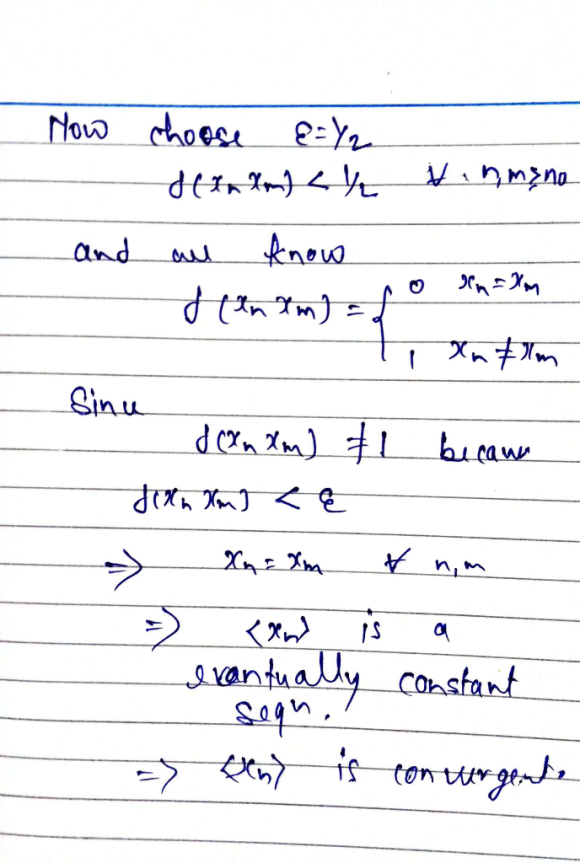 Now choose ε=1/2
d(xn xm) < 1/2 ∀ n,m≥no
and we know
d(xn xm) = { 0 xn=xm
1, xn≠xm
Since
d(xn xm) ≠1 because
d(xn xm) < ε
⇒ xn = xm ∀ n,m
⇒ <xn> is a
eventually constant
seqn.
⇒ <xn> is convergent.